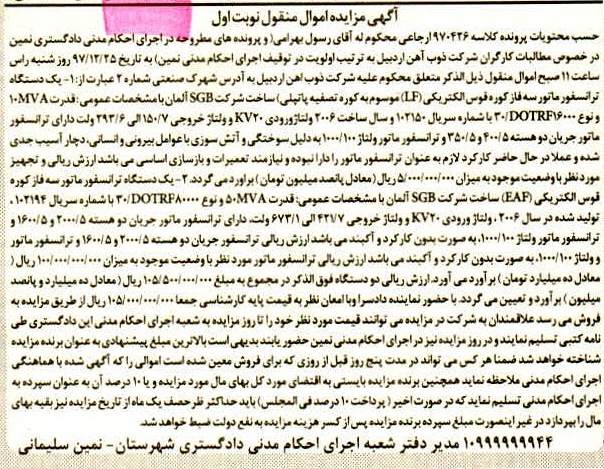 آگهی مزایده اموال منقول نوبت اول
حسب محتویات پرونده کلاسه ۹۷۰۴۲۶ ارجاعی محکوم له آقای رسول بهرامی( و پرونده های مطروحه در اجرای احکام مدنی دادگستری نمین
در خصوص مطالبات کارگران شرکت ذوب آهن اردبیل به ترتیب اولویت در توقیف اجرای احکام مدنی نمین) به تاریخ ۹۷/۱۲/۲۵ روز شنبه راس
ساعت ۱۱ صبح اموال منقول ذیل الذکر متعلق محکوم علیه شرکت ذوب اهن اردبیل به آدرس شهرک صنعتی شماره ۲ عبارت از: ۱- یک دستگاه
ترانسفور ماتور سه فاز کوره قوس الکتریکی (LF) موسوم به کوره تصفیه پاتیلی) ساخت شرکت SGB آلمان با مشخصات عمومی: قدرت ۱۰MVA
و نوع ۳۰/DOTRF۱۶۰۰۰ با شماره سریال ۱۰۲۱۵۰ و سال ساخت ۲۰۰۶ ولتاژ ورودی KV۲۰ و ولتاژ خروجی ۱۵۰/۷ الی ۲۹۳/۶ ولت دارای ترانسفور
ماتور جریان دو هسته ۴۰۰/۵ و ۳۵۰/۵ و ترانسفور ماتور ولتاژ ۱۰۰۰/۱۰۰ به دلیل سوختگی و آتش سوزی با عوامل بیرونی و انسانی، دچار آسیب جدی
شده و عملا در حال حاضر کارکرد لازم به عنوان ترانسفور ماتور را دارا نبوده و نیازمند تعمیرات و بازسازی اساسی می باشد ارزش ریالی و تجهیز
مورد نظر با وضعیت موجود به میزان ۵/۰۰۰/۰۰۰/۰۰۰ ریال (معادل پانصد میلیون تومان) براورد می گردد. ۲- یک دستگاه ترانسفور ماتور سه فاز کوره
قوس الکتریکی (EAF) ساخت شرکت SGB آلمان با مشخصات عمومی: قدرت ۵۰MVA و نوع ۳۰/DOTRF۸۰۰۰۰ با شماره سریال ۱۰۲۱۹۴،
تولید شده در سال ۲۰۰۶، ولتاژ ورودی KV۲۰ و ولتاژ خروجی ۴۲۱/۷ الی ۶۷۳/۱ ولت، دارای ترانسفور ماتور جریان دو هسته ۲۰۰۰/۵ و ۱۶۰۰/۵ و
ترانسفور ماتور ولتاژ ۱۰۰۰/۱۰۰، به صورت بدون کارکرد و آکبند می باشد ارزش ریالی ترانسفور جریان دو هسته ۲۰۰۰/۵ و ۱۶۰۰/۵ و ترانسفور ماتور
و ولتاژ ۱۰۰۰/۱۰۰، به صورت بدون کارکرد و آکبند می باشد ارزش ریالی ترانسفور ماتور مورد نظر با وضعیت موجود به میزان ۱۰۰/۰۰۰/۰۰۰/۰۰۰ ریال (
معادل ده میلیارد تومان ) برآورد می آورد. ارزش ریالی دو دستگاه فوق الذکر در مجموع به مبلغ ۱۰۵/۵۰۰/۰۰۰/۰۰۰ ریال (معادل ده میلیارد و پانصد
میلیون ) برآورد و تعیین می گردد. با حضور نماینده دادسرا و با امعان نظر به قیمت پایه کارشناسی جمعا ۱۰۵/۰۰۰/۰۰۰/۰۰۰ ریال از طریق مزایده به
فروش می رسد علاقمندان به شرکت در مزایده می توانند قیمت مورد نظر خود را تا روز مزایده به شعبه اجرای احکام مدنی این دادگستری طی
نامه کتبی تسلیم نمایند و در روز مزایده نیز در اجرای احکام مدنی نمین حضور یابند بدیهی است بالاترین مبلغ پیشنهادی به عنوان برنده مزایده
شناخته خواهد شد ضمنا هر کس می تواند در مدت پنج روز قبل از روزی که برای فروش معین شده است اموالی را که آگهی شده با هماهنگی
اجرای احکام مدنی ملاحظه نماید همچنین برنده مزایده بایستی به اقتضای مورد کل بهای مال مورد مزایده و یا ۱۰ درصد آن به عنوان سپرده به
اجرای احکام مدنی تسلیم نماید که در صورت اخیر ( پرداخت ۱۰ درصد فی المجلس) باید حداکثر ظرف یک ماه از تاریخ مزایده نیز بقیه بهای
مال را بپردازد در غیر اینصورت مبلغ سپرده برنده مزایده پس از کسر هزینه مزایده به نفع دولت ضبط خواهد شد.
۱۰۹۹۹۹۹۹۹۴۴ مدیر دفتر شعبه اجرای احکام مدنی دادگستری شهرستان- نمین سلیمانی